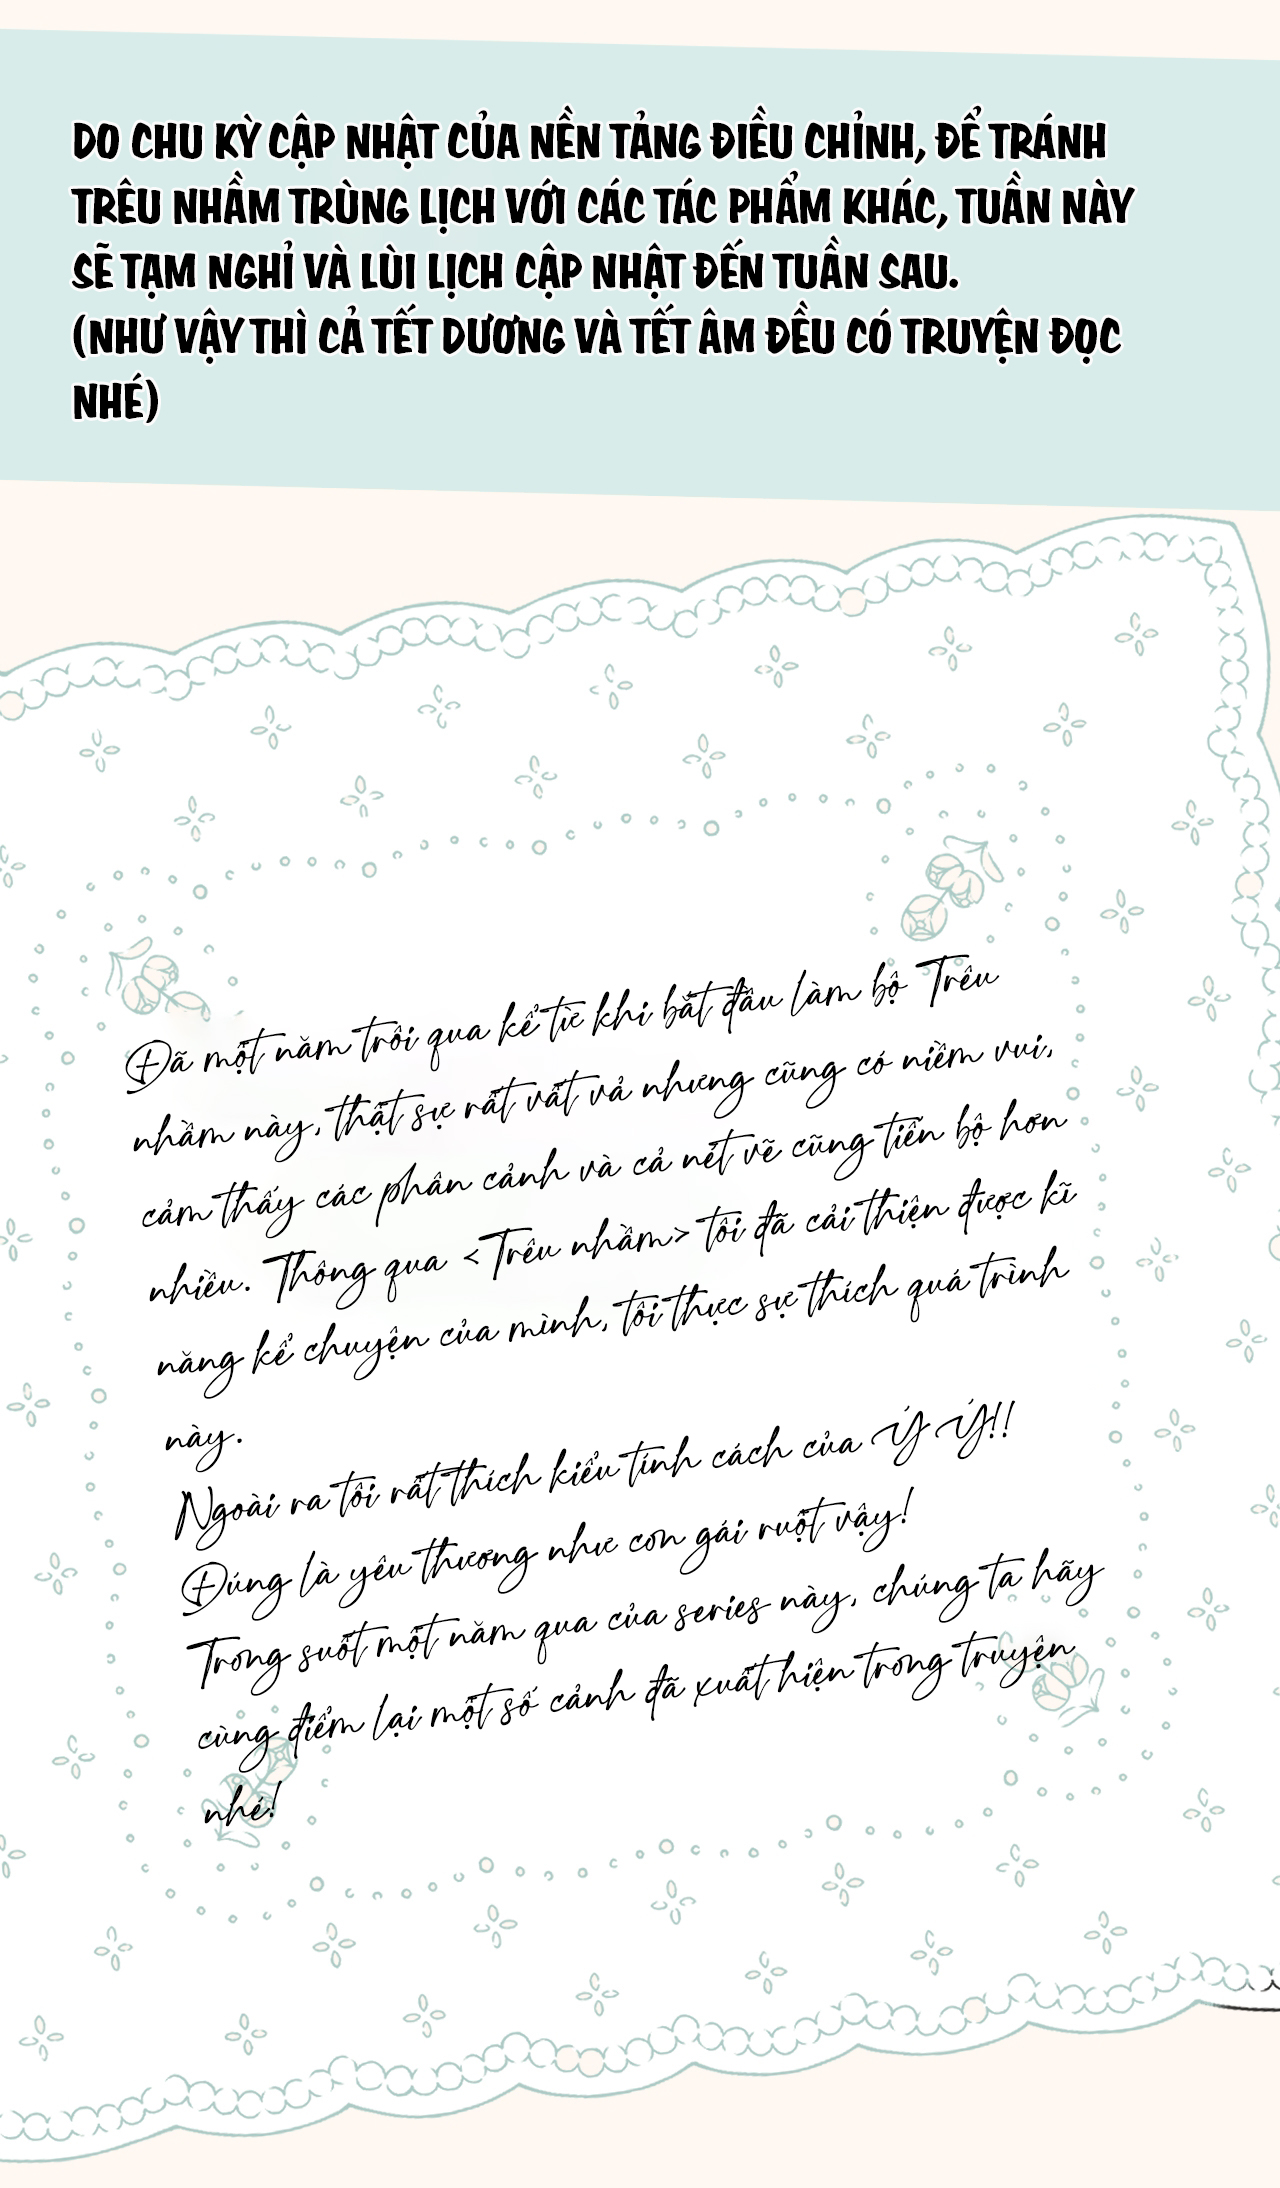 DO CHU KỲ CẬP NHẬT CỦA NỀN TẢNG ĐIỀU CHỈNH, ĐỂ TRÁNH
TRÊU NHẦM TRÙNG LỊCH VỚI CÁC TÁC PHẨM KHÁC, TUẦN NÀY
SẼ TẠM NGHỈ VÀ LÙI LỊCH CẬP NHẬT ĐẾN TUẦN SAU.
(NHƯ VẬY THÌ CẢ TẾT DƯƠNG VÀ TẾT ÂM ĐỀU CÓ TRUYỆN ĐỌC
NHÉ)
Đã một năm trôi qua kể từ khi bắt đầu làm bộ Trêu
nhầm này, thật sự rất vất vả nhưng cũng có niềm vui,
cảm thấy các phân cảnh và cả nét vẽ cũng tiến bộ hơn
nhiều. Thông qua <Trêu nhầm> tôi đã cải thiện được kĩ
năng kể chuyện của mình, tôi thực sự thích quá trình
này.
Ngoài ra tôi rất thích kiểu tính cách của Ý Ý!!
Đúng là yêu thương như con gái ruột vậy!
Trong suốt một năm qua của series này, chúng ta hãy
cùng điểm lại một số cảnh đã xuất hiện trong truyện
nhé!